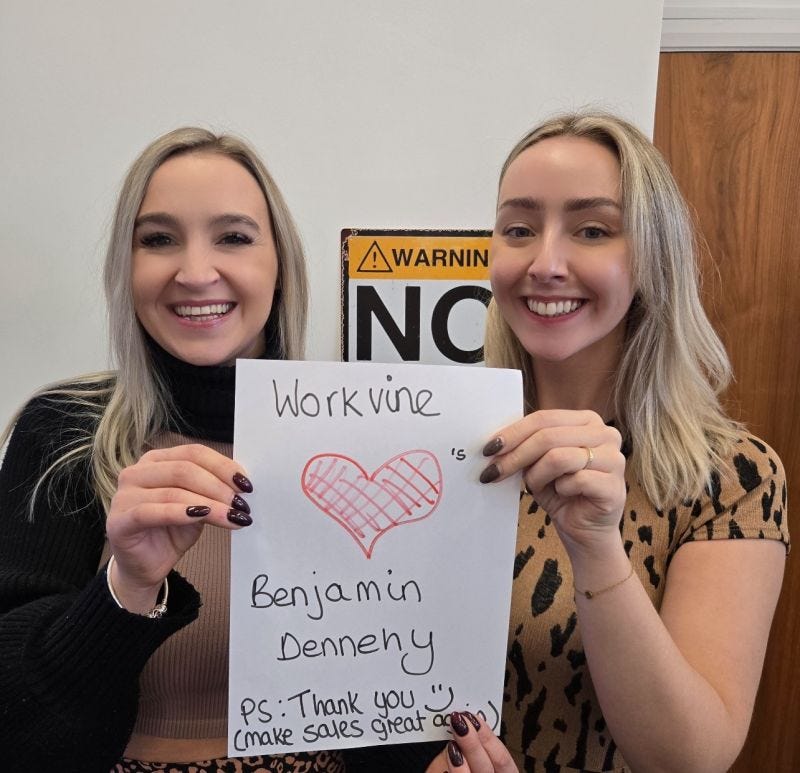 WARNIN
NO
Workvine
's
Benjamin
Dennehy
PS: Thank you
(make sales great again)